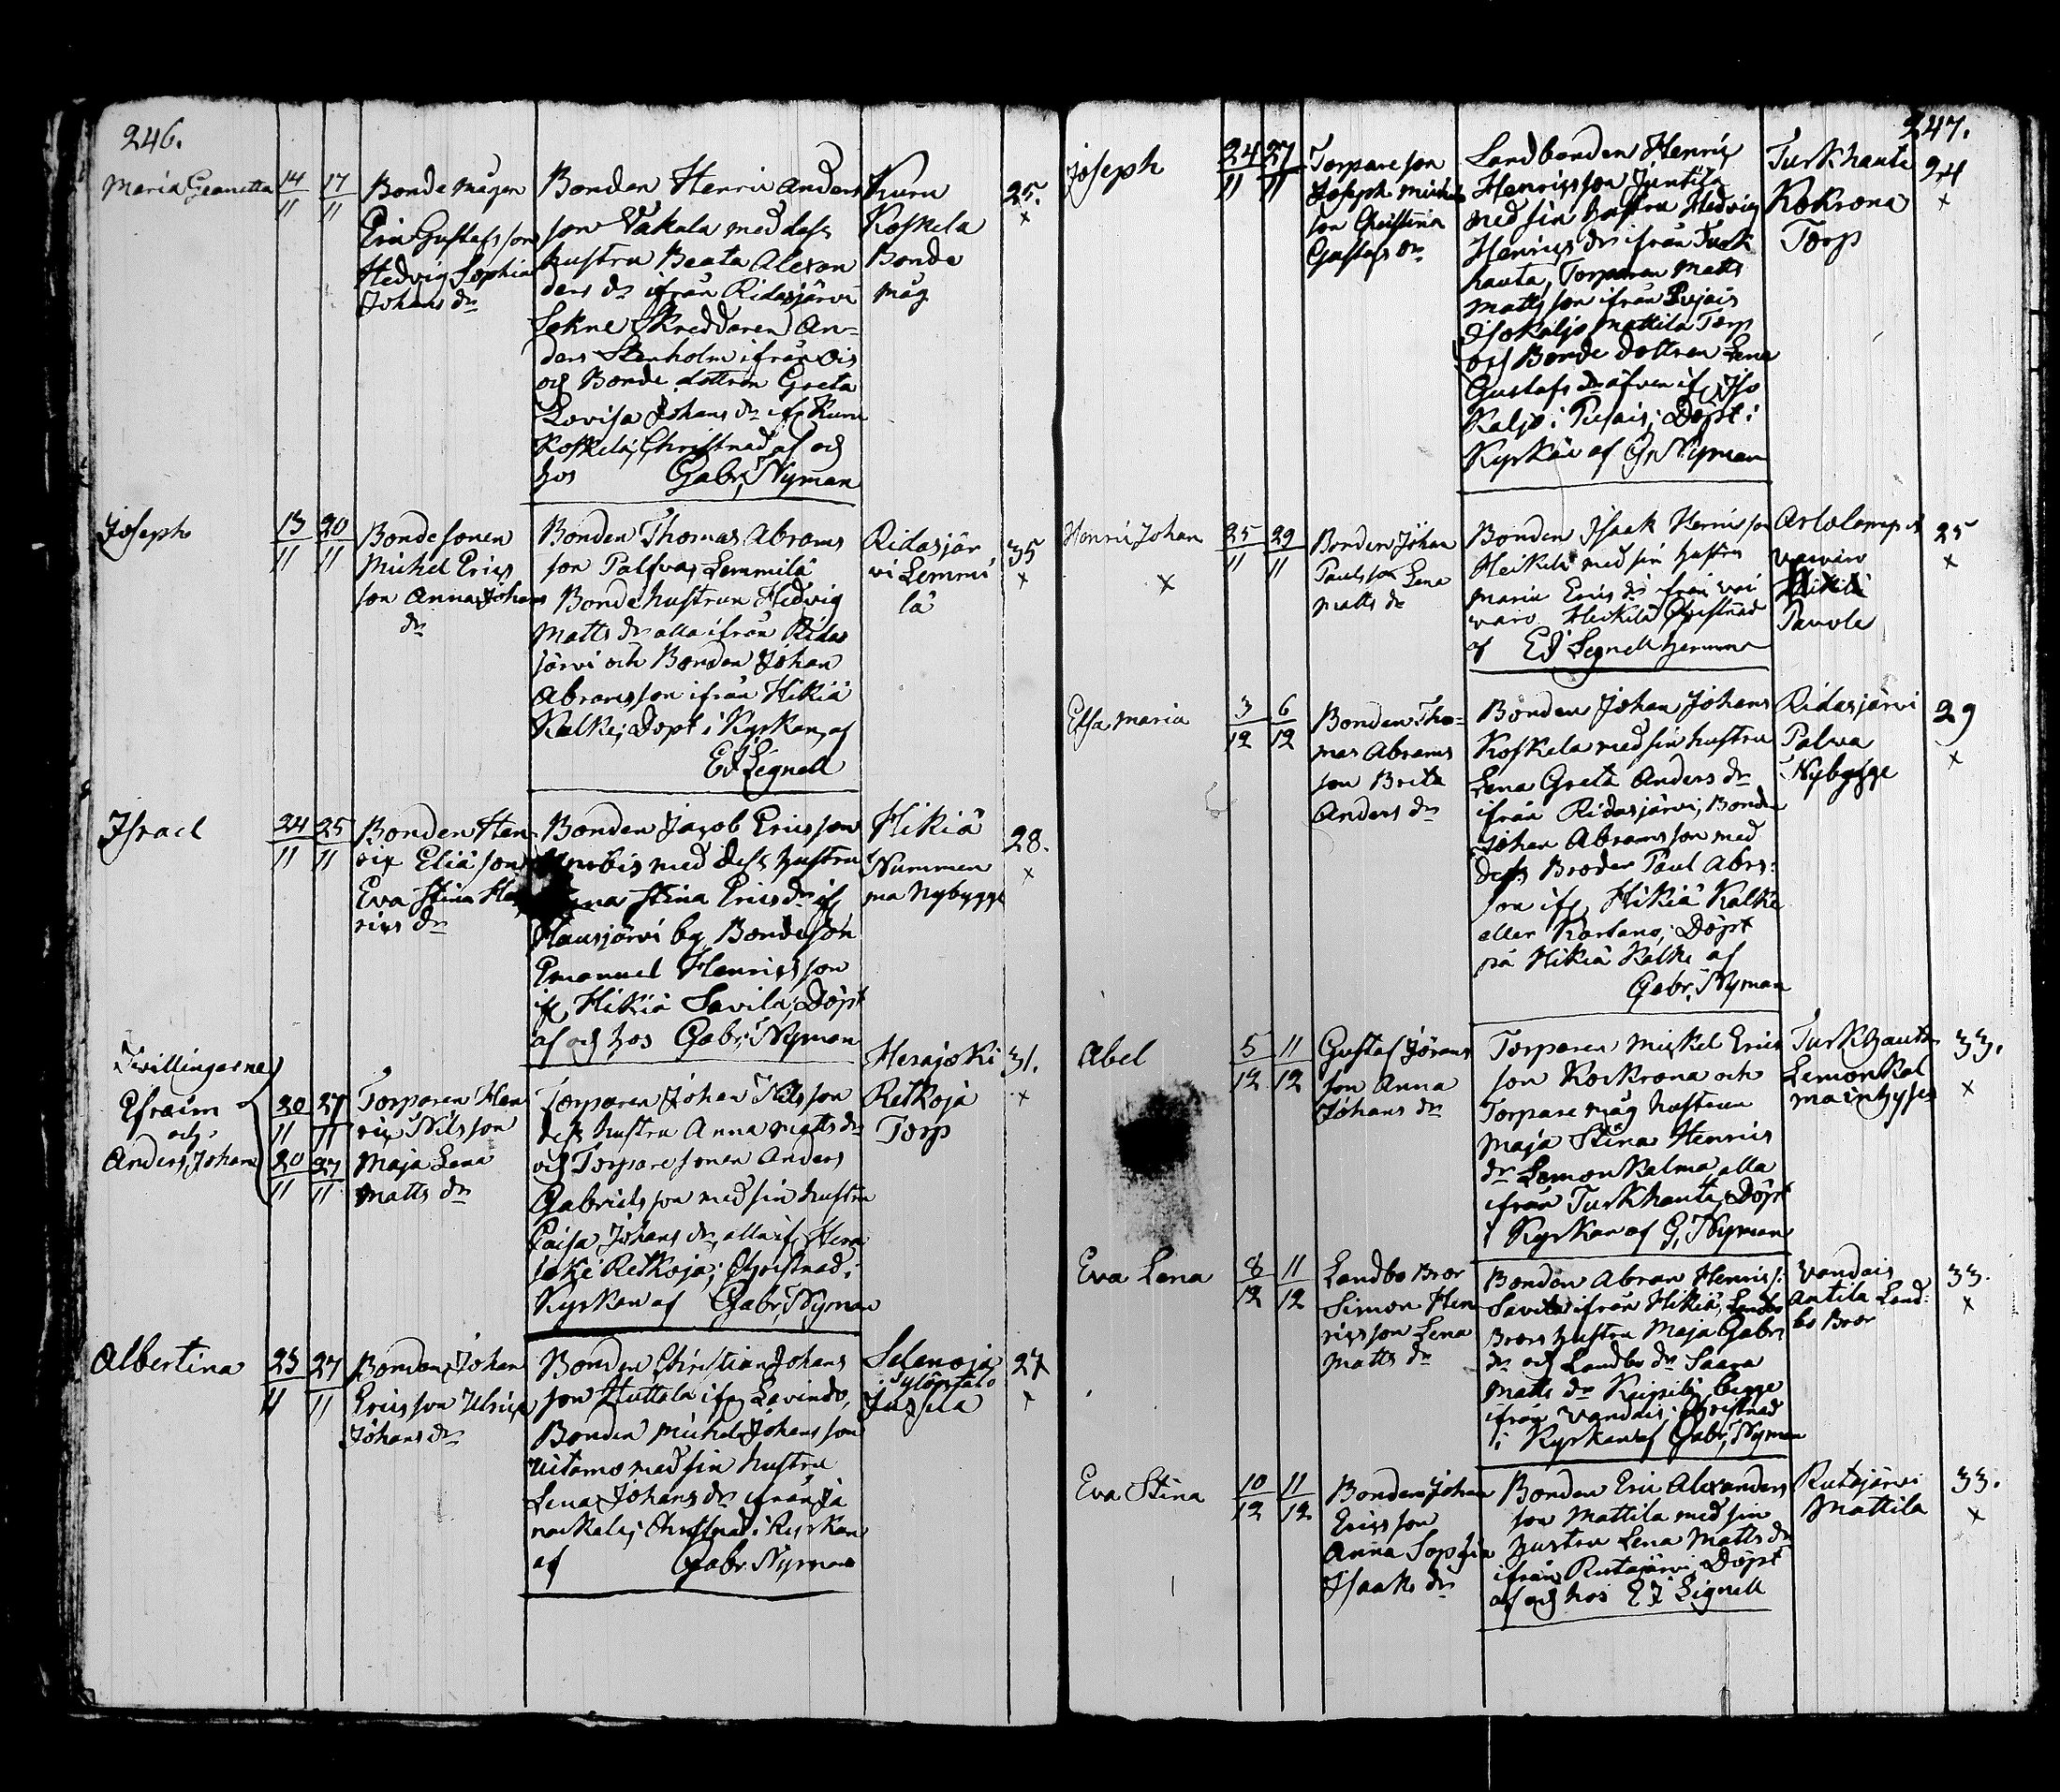 246.
Maria Geanetta
14/11 17/11
Bonde mågen
Eric Gustafs son
Hedvig Sophia
Johans dr
Bonden Henric Anders
son Takala med dess
hustru Beata Alexan
ders dr ifrån Ridasjärvi
Sokne Skreddaren An-
ders Stenholm ifrån Ois
och Bonde dottren Greta
Lovisa Johans dr ifr Kuru
Koskela; Christnad af och
hos Gabr; Nyman
Kuru
Koskela
Bonde
måg
25.
×
Joseph
13/11 20/11
Bondesonen
Michel Erics
son Anna Johans
dr
Bonden Thomas Abrams
son Palsva, Lemmilä
Bondehustrun Hedvig
Matts dr alla ifrån Ridas
järvi och Bonden Johan
Abramsson ifrån Hikiä
Kalke; Döpt i Kyrkan, af
EJ Legnell
Ridasjär
vi Lemmi
lä
35
×
Israel
24/11 25/11
Bonden Hen
ric Eliä son
Eva Stina Hen
rics dr
Bonden Jacob Ericsson
med dess hustru
Stina Erics dr ifr
Hausjärvi by Bondeson
Emanuel Henricsson
ifr Hikiä Savila; Döpt
af och hos Gabr; Nyman
Hikiä
Nummen
ma Nybygge
28.
×
Tvillingarne
Efraim
och
Anders Johan
20/11 27/11
20/11 27/11
Torparen Hen
ric Nilsson
Maja Lena
Matts dr
Torparen Johan Nilsson
dess hustru Anna Matts dr
och Torpare sonen Anders
Gabriels son med sin hustru
Caisa Johans dr, alla ifr Hera
joki Retkoja; Christnad i
Kyrkan af Gabr; Nyman
Herajoki
Retkoja
Torp
31.
×
Albertina
23/11 27/11
Bonden Johan
Ericsson Ulrica
Johans dr
Bonden Christian Johans
son Huttala ifr Lavindo,
Bonden Michel Johansson
Uitamo med sin hustru
Lena Johans dr ifrån Ja
nackala; Christnad i Kyrkan
af Gabr. Nyman
Selenoja
Sylöstalo
Jussila
27
×
247.
Joseph
24/11 27/11
Torpareson
Joseph Michels
son Christina
Gustafs dr
Landbonden Henric
Henricsson Juntila
med sin hustru Hedvig
Henrics dr ifrån Turk
hauta, Torparen Matts
Mattsson ifrån Pujais
Isokaljo Mattila Torp
och Bonde dottren Lena
Gustafs dr äfven ifr Iso
Kaljo i Pujais; Döpt i
Kyrkan af G; Nyman
Turkhauta
Kokrona
Torp
24
×
Henric Johan
×
25/11 29/11
Bonden Johan
Paulsson Lena
Matts dr
Bonden Isaak Henricson
Heikilä med sin hustru
Maria Erics dr ifrån Vai
varo Heikilä Christnad
af EJ Legnell hemma
Paavola
25
×
Elsa Maria
3/12 6/12
Bonden Tho-
mas Abrams
son Brita
Anders dr
Bonden Johan Johans
Koskela med sin hustru
Lena Greta Anders dr
ifrån Ridasjärvi; Bonden
Johan Abramsson med
dess Broder Paul Abrs:
son ifr Hikiä Kalke
eller Kartano; Döpt
på Hikiä Kalke af
Gabr; Nyman
Ridasjärvi
Palva
Nybygge
29
×
Abel
5/12 11/12
Gustaf Jörans
son Anna
Johans dr
Torparen Mickel Erics
son Kockrona och
Torpare måg hustrun
Maja Stina Henrics
dr Lemonkalma, alla
ifrån Turkhauta; Döpt
i Kyrkan af G; Nyman
Turkhauta
Lemonkal
ma inhyses
33.
×
Eva Lena
8/12 11/12
Landbo Bror
Simon Hen
ricsson Lena
Matts dr
Bonden Abram Henrics:
Savila ifrån Hikiä, Landbo
Brors hustru Maja Gabri
dr och Landbo dr Saara
Matts dr begge
ifrån Vandais; Christnad
i Kyrkan af Gabr; Nyman
Vandais
Antila Land-
bo Bror
33.
×
Eva Stina
10/12 11/12
Bonden Johan
Ericsson
Anna Sophia
Isaaks dr
Bonden Eric Alexanders
son Mattila med sin
hustru Lena Matts dr
ifrån Rutajärvi; Döpt
af och hos EJ Lignell
Rutajärvi
Mattila
33.
×